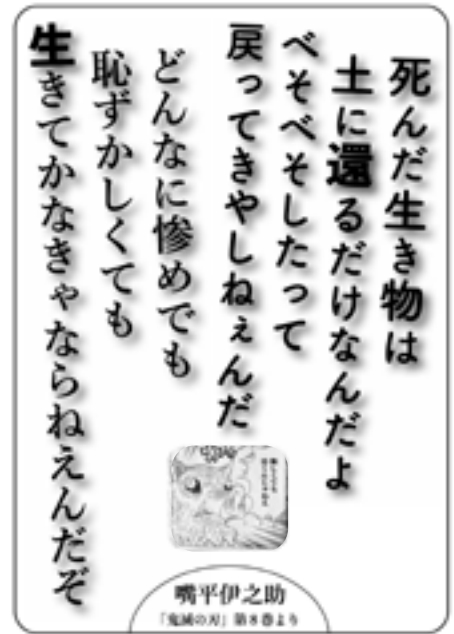 死んだ生き物は
土に還るだけなんだよ
べそべそしたって
戻ってきやしねぇんだ
どんなに惨めでも
恥ずかしくても
生きてかなきゃならねえんだぞ
嘴平伊之助
「鬼滅の刃」第8巻より